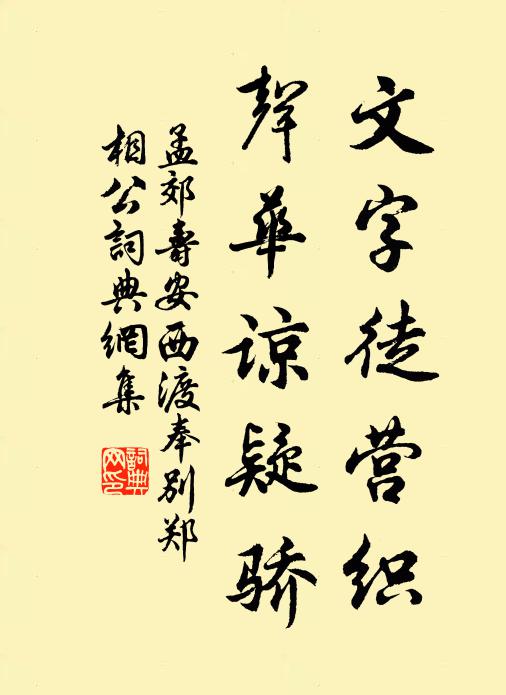 文字徒营织
声华谅疑骄
孟郊寿安西渡奉别郑
相公词典網集
詞典網印